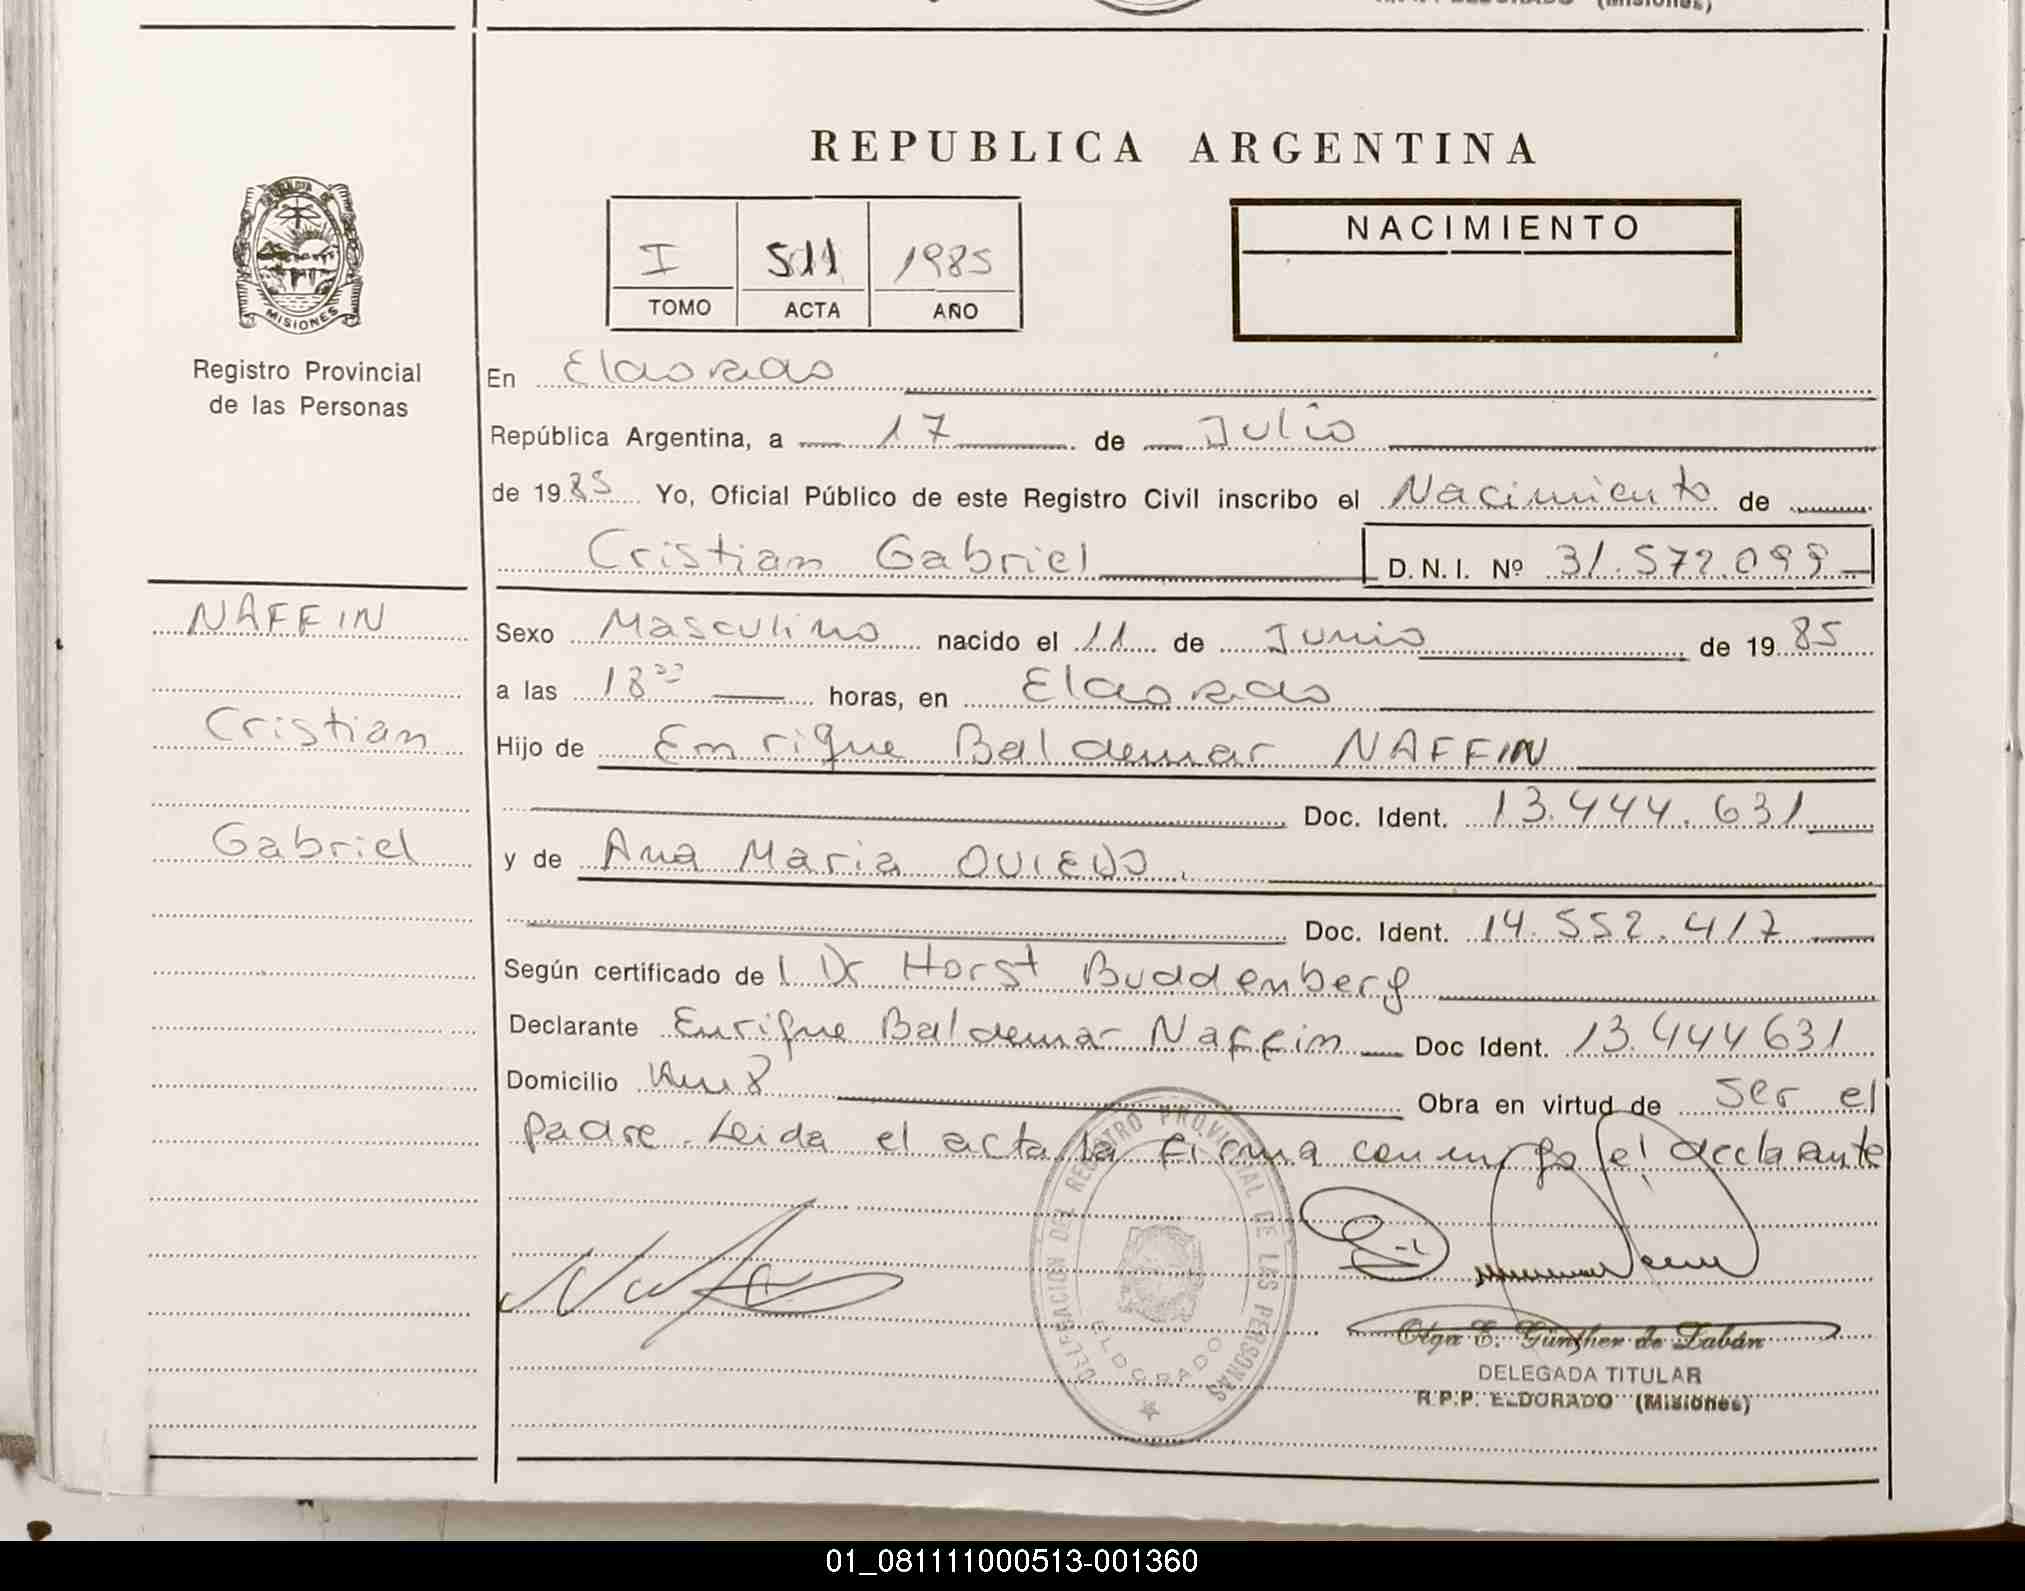 R.P.P. ELDORADO (Misiones)
REPUBLICA ARGENTINA
I 511 1985
TOMO ACTA AÑO
NACIMIENTO
MISIONES
Registro Provincial
de las Personas
En Eldorado
República Argentina, a 17 de Julio
de 1985 Yo, Oficial Público de este Registro Civil inscribo el Nacimiento de
Cristian Gabriel D.N.I. Nº 31.572.099
NAFFIN
Cristian
Gabriel
Sexo Masculino nacido el 11 de Junio de 1985
a las 18 horas, en Eldorado
Hijo de Enrique Baldemar NAFFIN
Doc. Ident. 13.444.631
y de Ana Maria OVIEDO
Doc. Ident. 14.552.417
Según certificado de l Dr Horst Buddenberg
Declarante Enrique Baldemar Naffin Doc Ident. 13.444631
Domicilio Km 8 Obra en virtud de ser el
padre. Leida el acta la firma conmigo el declarante
DELEGACION DEL REGISTRO PROVINCIAL DE LAS PERSONAS
ELDORADO
Olga E. Günther de Zabán
DELEGADA TITULAR
R.P.P. ELDORADO (Misiones)
01_081111000513-001360